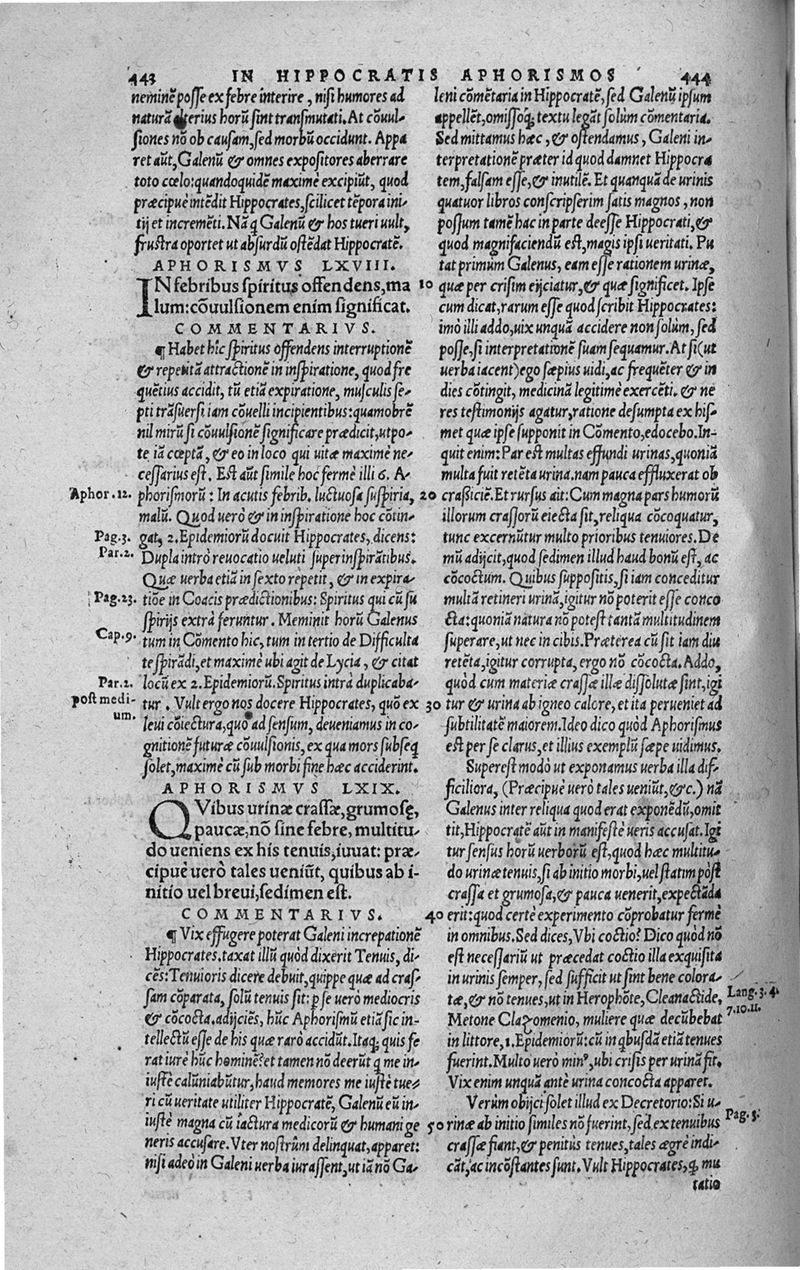 443 IN HIPPOCRATIS APHORISMOS 444
neminē posse ex febre interire, nisi humores ad
naturā alterius horū sint transmutati. At cōuul-
siones nō ob causam, sed morbū occidunt. Appa
ret aūt, Galenū & omnes expositores aberrare
toto cœlo: quandoquidē maximè excipiūt, quod
præcipuè intēdit Hippocrates, scilicet tēpora ini-
tij et incremēti. Nā q Galenū & hos tueri uult,
frustra oportet ut absurdū ostēdat Hippocratē.
APHORISMVS LXVIII.
IN febribus spiritus offendens, ma
lum: cōuulsionem enim significat.
COMMENTARIVS.
¶ Habet hîc spiritus offendens interruptionē
& repetitā attractionē in inspiratione, quod fre
quētius accidit, tū etiā expiratione, musculis se-
pti trāsuersi iam cōuelli incipientibus: quamobrē
nil mirū si cōuulsionē significare prædicit, utpo-
te iā cœptā, & eo in loco qui uitæ maximè ne-
cessarius est. Est aūt simile hoc fermè illi 6. A-
Aphor. 12. phorismorū: In acutis febrib. luctuosa suspiria,
malū. Quod uerò & in inspiratione hoc cōtin-
Pag. 3. gat, 2. Epidemiorū docuit Hippocrates, dicens:
Par. 2. Dupla intrò reuocatio ueluti superinspirātibus.
Quæ uerba etiā in sexto repetit, & in expira-
Pag. 23. tiōe in Coacis prædictionibus: Spiritus qui cū su
spirijs extrà feruntur. Meminit horū Galenus
Cap. 9. tum in Cōmento hic, tum in tertio de Difficulta
te spirādi, et maximè ubi agit de Lycia, & citat
Par. 2. locū ex 2. Epidemiorū. Spiritus intrà duplicaba-
post medi- tur. Vult ergo nos docere Hippocrates, quō ex
um. leui cōiectura, quo ad sensum, deueniamus in co-
gnitionē futuræ cōuulsionis, ex qua mors subseq
solet, maximè cū sub morbi fine hæc acciderint.
APHORISMVS LXIX.
QVibus urinæ crassæ, grumosę,
paucæ, nō sine febre, multitu-
do ueniens ex his tenuis, iuuat: præ-
cipuè uerò tales ueniūt, quibus ab i-
nitio uel breui, sedimen est.
COMMENTARIVS.
¶ Vix effugere poterat Galeni increpationē
Hippocrates. taxat illū quòd dixerit Tenuis, di-
cēs: Tenuioris dicere debuit, quippe quæ ad cras-
sam cōparata, solū tenuis sit: p se uerò mediocris
& cōcocta. adijciēs, hūc Aphorismū etiā sic in-
tellectū esse de his quæ rarò accidūt. Itaq; quis fe
rat iurè hūc hominē? et tamen nō deerūt q me in-
iustè calūniabūtur, haud memores me iustè tue-
ri cū ueritate utiliter Hippocratē, Galenū eū in-
iustè magna cū iactura medicorū & humani ge
neris accusare. Vter nostrûm delinquat, apparet:
nisi adeò in Galeni uerba iurassent, ut iā nō Ga-
leni cōmētaria in Hippocratē, sed Galenū ipsum
appellēt, omissoq; textu legāt solùm cōmentaria.
Sed mittamus hæc, & ostendamus, Galeni in-
terpretationē præter id quod damnet Hippocra
tem, falsam esse, & inutilē. Et quanquā de urinis
quatuor libros conscripserim satis magnos, non
possum tamē hac in parte deesse Hippocrati, &
quod magnifaciendū est, magis ipsi ueritati. Pu
tat primùm Galenus, eam esse rationem urinæ,
10 quæ per crisim eijciatur, & quæ significet. Ipse
cum dicat, rarum esse quod scribit Hippocrates:
imò illi addo, uix unquā accidere non solùm, sed
posse, si interpretationē suam sequamur. At si (ut
uerba iacent) ego sæpius uidi, ac frequēter & in
dies cōtingit, medicinā legitimè exercēti. & ne
res testimonijs agatur, ratione desumpta ex his-
met quæ ipse supponit in Cōmento, edocebo. In-
quit enim: Par est multas effundi urinas, quoniā
multa fuit retēta urina. nam pauca effluxerat ob
20 crassiciē. Et rursus ait: Cum magna pars humorū
illorum crassorū eiecta sit, reliqua cōcoquatur,
tunc excernūtur multo prioribus tenuiores. De
mū adijcit, quod sedimen illud haud bonū est, ac
cōcoctum. Quibus suppositis, si iam conceditur
multā retineri urinā, igitur nō poterit esse conco
cta: quoniā natura nō potest tantā multitudinem
superare, ut nec in cibis. Præterea cū sit iam diu
retēta, igitur corrupta, ergo nō cōcocta. Addo,
quòd cum materiæ crassæ illæ dissolutæ sint, igi
30 tur & urina ab igneo calore, et ita perueniet ad
subtilitatē maiorem. Ideo dico quòd Aphorismus
est per se clarus, et illius exemplū sæpe uidimus.
Superest modò ut exponamus uerba illa dif-
ficiliora, (Præcipuè uerò tales ueniūt, &c.) nā
Galenus inter reliqua quod erat exponēdū, omit
tit, Hippocratē aūt in manifestè ueris accusat. Igi
tur sensus horū uerborū est, quod hæc multitu-
do urinæ tenuis, si ab initio morbi, uel statim pòst
crassa et grumosa, & pauca uenerit, expectāda
40 erit: quod certè experimento cōprobatur fermè
in omnibus. Sed dices, Vbi coctio? Dico quòd nō
est necessariū ut præcedat coctio illa exquisita
in urinis semper, sed sufficit ut sint bene colora-
tæ, & nō tenues, ut in Herophōte, Cleanactide, Lang. 3. 4.
Metone Clazomenio, muliere quæ decūbebat 7. 10. 11.
in littore, 1. Epidemiorū: cū in qbusdā etiā tenues
fuerint. Multo uerò minꝰ, ubi crisis per urinā fit.
Vix enim unquā antè urina concocta apparet.
Verùm obijci solet illud ex Decretorio: Si u- Pag. 5.
50 rinæ ab initio similes nō fuerint, sed ex tenuibus
crassæ fiant, & penitùs tenues, tales ægrè indi-
cāt, ac incōstantes sunt. Vult Hippocrates, q mu
tatio